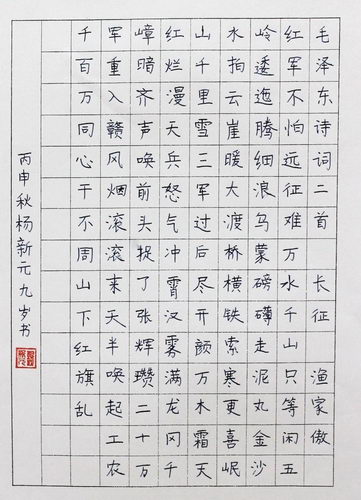 毛泽东诗词二首 长征 渔家傲
红军不怕远征难万水千山只等闲五
岭逶迤腾细浪乌蒙磅礴走泥丸金沙
水拍云崖暖大渡桥横铁索寒更喜岷
山千里雪三军过后尽开颜万木霜天
红烂漫天兵怒气冲霄汉雾满龙冈千
嶂暗齐声唤前头捉了张辉瓒二十万
军重入赣风烟滚滚来天半唤起工农
千百万同心干不周山下红旗乱
丙申秋杨新元九岁书